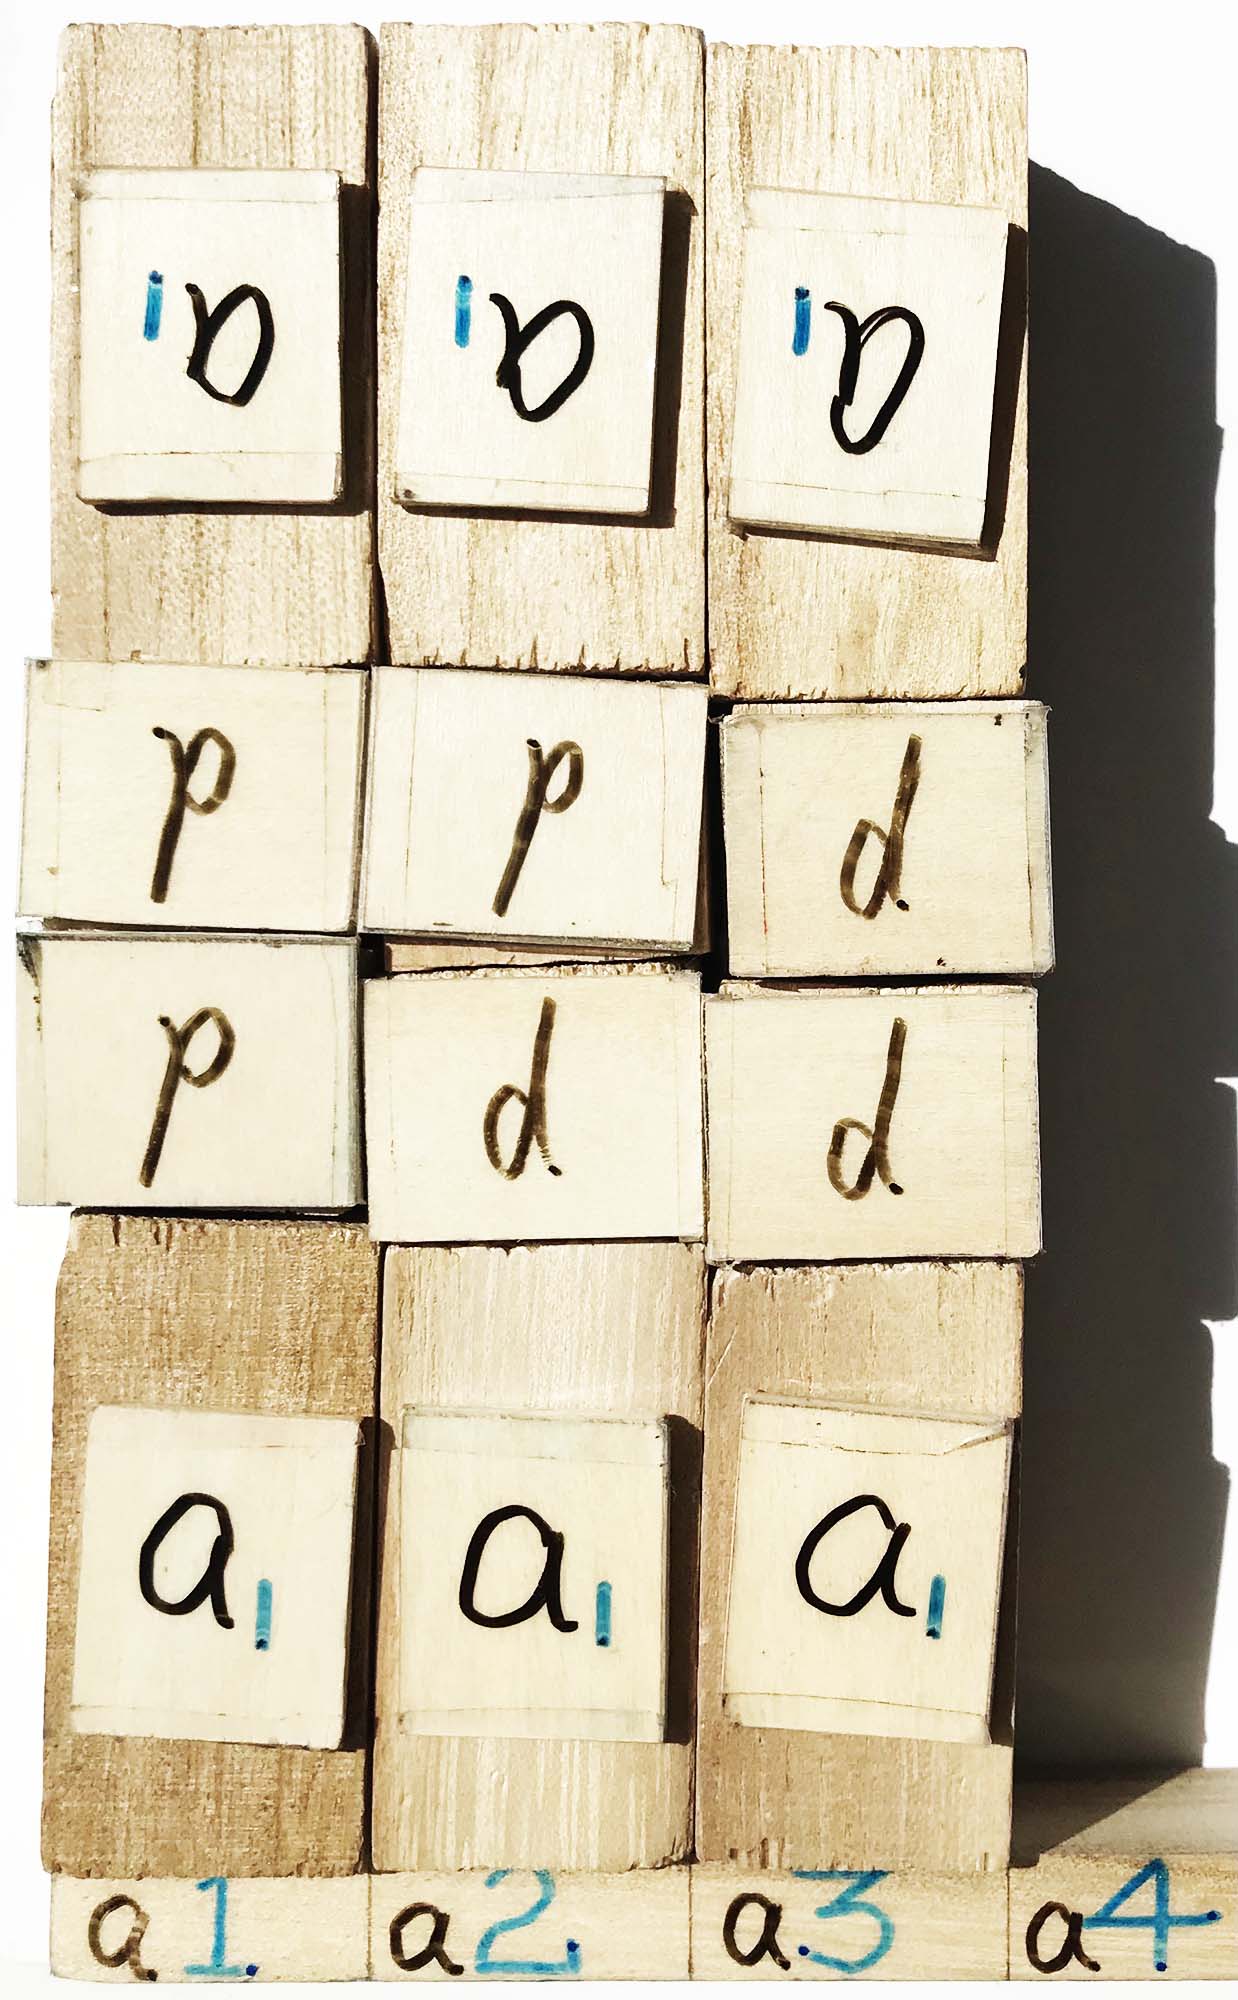 a₁ a₁ a₁
d d d
d d d
a₁ a₁ a₁
a1 a2 a3 a4